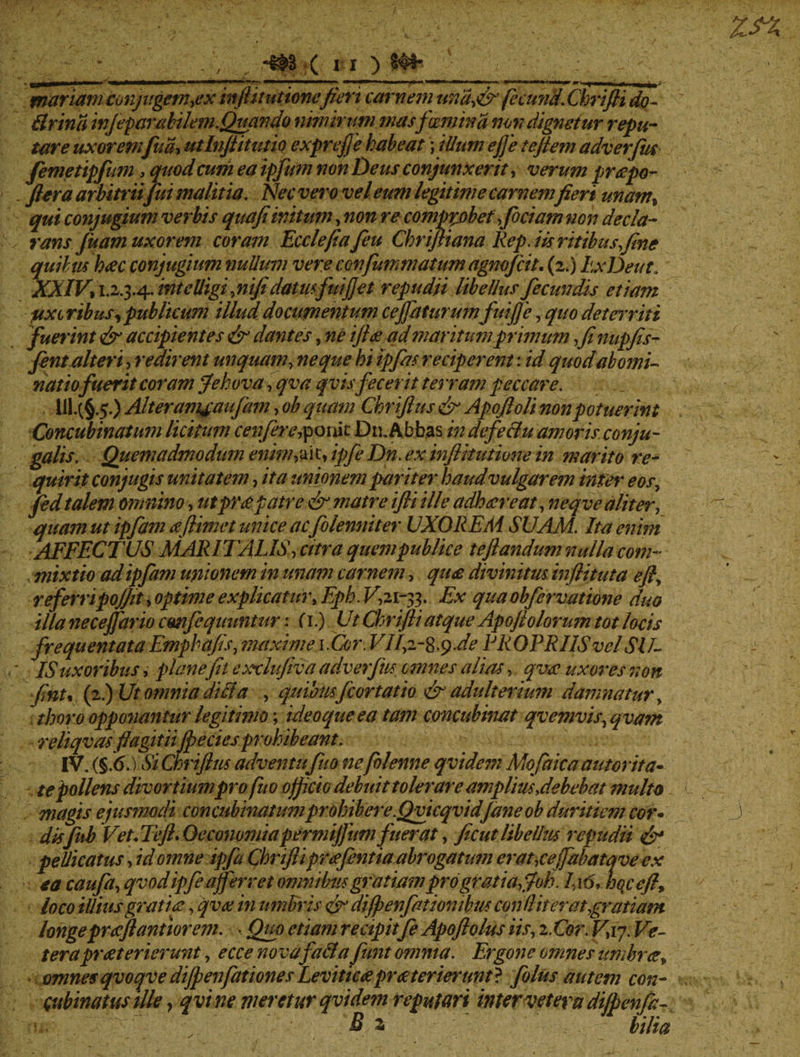 252
( 11 )
mariam conjugem, ex institutione fieri carnem unâ, & secund. Christi do-
ctrinâ inseparabilem. Quando nimirum mas fœminâ non dignetur repu-
tare uxorem suâ, ut Institutio expresse habeat; illum esse testem adversus
semetipsum, quod cum ea ipsum non Deus conjunxerit, verum præpo-
stera arbitrii sui malitia. Nec vero vel eum legitime carnem fieri unam,
qui conjugium verbis quasi initum, non re comprobet, sociam non decla-
rans suam uxorem coram Ecclesia seu Christiana Rep. iis ritibus, sine
quibus hæc conjugium nullum vere consummatum agnoscit. (2.) Ex Deut.
XXIV, 1.2.3.4. intelligi, nisi datus fuisset repudii libellus secundis etiam
uxoribus, publicum illud documentum cessaturum fuisse, quo deterriti
fuerint & accipientes & dantes, ne istæ ad maritum primum, si nupsis-
sent alteri, redirent unquam, neque hi ipsas reciperent: id quod abomi-
natio fuerit coram Jehova, qva qvis fecerit terram peccare.
III. (§.5.) Alteram causam, ob quam Christus & Apostoli non potuerint
Concubinatum licitum censere, ponit Dn. Abbas in defectu amoris conju-
galis. Quemadmodum enim, ait, ipse Dn. ex institutione in marito re-
quirit conjugis unitatem, ita unionem pariter haud vulgarem inter eos,
sed talem omnino, ut præ patre & matre isti ille adhæreat, neqve aliter,
quam ut ipsam æstimet unice ac solenniter UXOREM SUAM. Ita enim
AFFECTUS MARITALIS, citra quem publice testandum nulla com-
mixtio ad ipsam unionem in unam carnem, quæ divinitus instituta est,
referri possit, optime explicatur, Eph. V, 21-33. Ex qua observatione duo
illa necessario consequuntur: (1.) Ut Christi atque Apostolorum tot locis
frequentata Emphasis, maxime 1. Cor. VII, 2-8.9. de PROPRIIS vel SU-
IS uxoribus, plane sit exclusiva adversus omnes alias, qvæ uxores non
sint. (2.) Ut omnia dicta, quibus scortatio & adulterium damnatur,
thoro opponantur legitimo; ideoque ea tam concubinat qvemvis, qvam
reliqvas flagitii species prohibeant.
IV. (§.6.) Si Christus adventu suo ne solenne qvidem Mosaica autorita-
te pollens divortium pro suo officio debuit tolerare amplius, debebat multo
magis ejusmodi concubinatum prohibere. Qvicqvid sane ob duritiem cor-
dis sub Vet. Test. Oeconomia permissum fuerat, sicut libellus repudii &
pellicatus, id omne ipsa Christi præsentia abrogatum erat, cessabatqve ex
ea causa, qvod ipse afferret omnibus gratiam pro gratia, Joh. I, 16. hqc est,
loco illius gratiæ, qvæ in umbris & dispensationibus constiterat, gratiam
longe præstantiorem. Quo etiam recipit se Apostolus iis, 2. Cor. V, 17. Ve-
tera præterierunt, ecce nova facta sunt omnia. Ergone omnes umbræ,
omnes qvoqve dispensationes Leviticæ præterierunt? solus autem con-
cubinatus ille, qvi ne meretur qvidem reputari inter vetera dispensa-
B 2
bilia